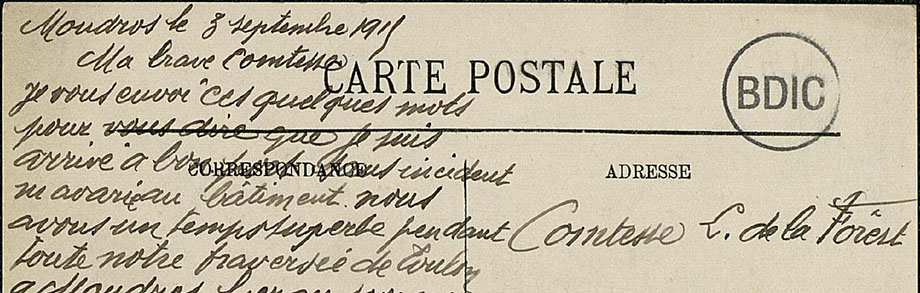 Moudros le 3 septembre 1915
Ma brave Comtesse
CARTE POSTALE
BDIC
Je vous envoi ces quelques mots
pour vous dire que je suis
arrivé à bon sans incident
CORRESPONDANCE
ADRESSE
ni avarie au bâtiment. nous
avons un temps superbe pendant
toute notre traversée de Toulon
à Moudros
Comtesse L. de la Forest